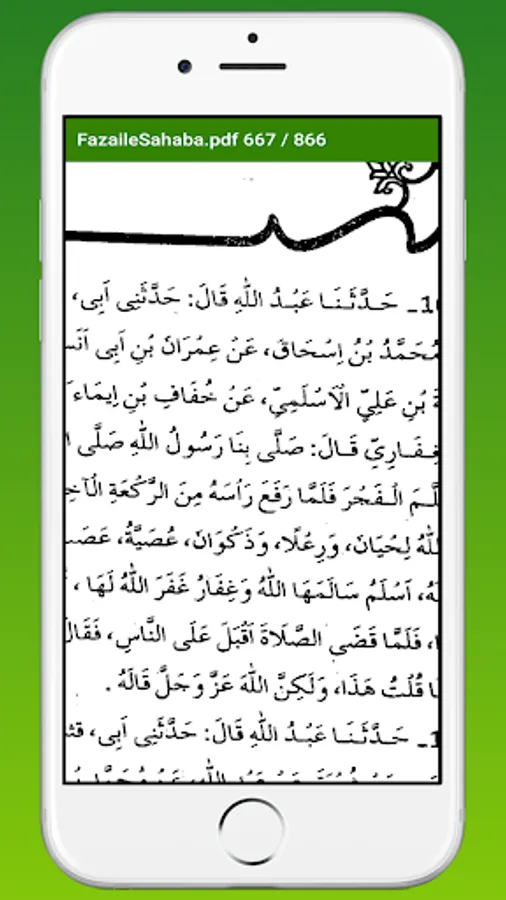 FazaileSahaba.pdf 667 / 866
حَدَّثَنَا عَبْدُ اللّٰهِ قَالَ: حَدَّثَنِی اَبِی،
مُحَمَّدُ بْنُ اِسْحَاقَ، عَنْ عِمْرَانَ بْنِ اَبِی
بْنِ عَلِیٍّ الْاَسْلَمِیِّ، عَنْ خُفَافِ بْنِ اِیمَاءَ
قَالَ: صَلَّی بِنَا رَسُولُ اللّٰهِ صَلَّی
الْفَجْرَ فَلَمَّا رَفَعَ رَاْسَهُ مِنَ الرَّكْعَةِ
لِحْيَانَ، وَرِعْلًا، وَذَكْوَانَ، عُصَيَّةُ،
اَسْلَمُ سَالَمَهَا اللّٰهُ وَغِفَارُ غَفَرَ اللّٰهُ لَهَا ،
فَلَمَّا قَضَی الصَّلَاةَ اَقْبَلَ عَلَی النَّاسِ، فَقَالَ
قُلْتُ هَذَا، وَلَكِنَّ اللّٰهَ عَزَّ وَجَلَّ قَالَهُ .
حَدَّثَنَا عَبْدُ اللّٰهِ قَالَ: حَدَّثَنِی اَبِی،